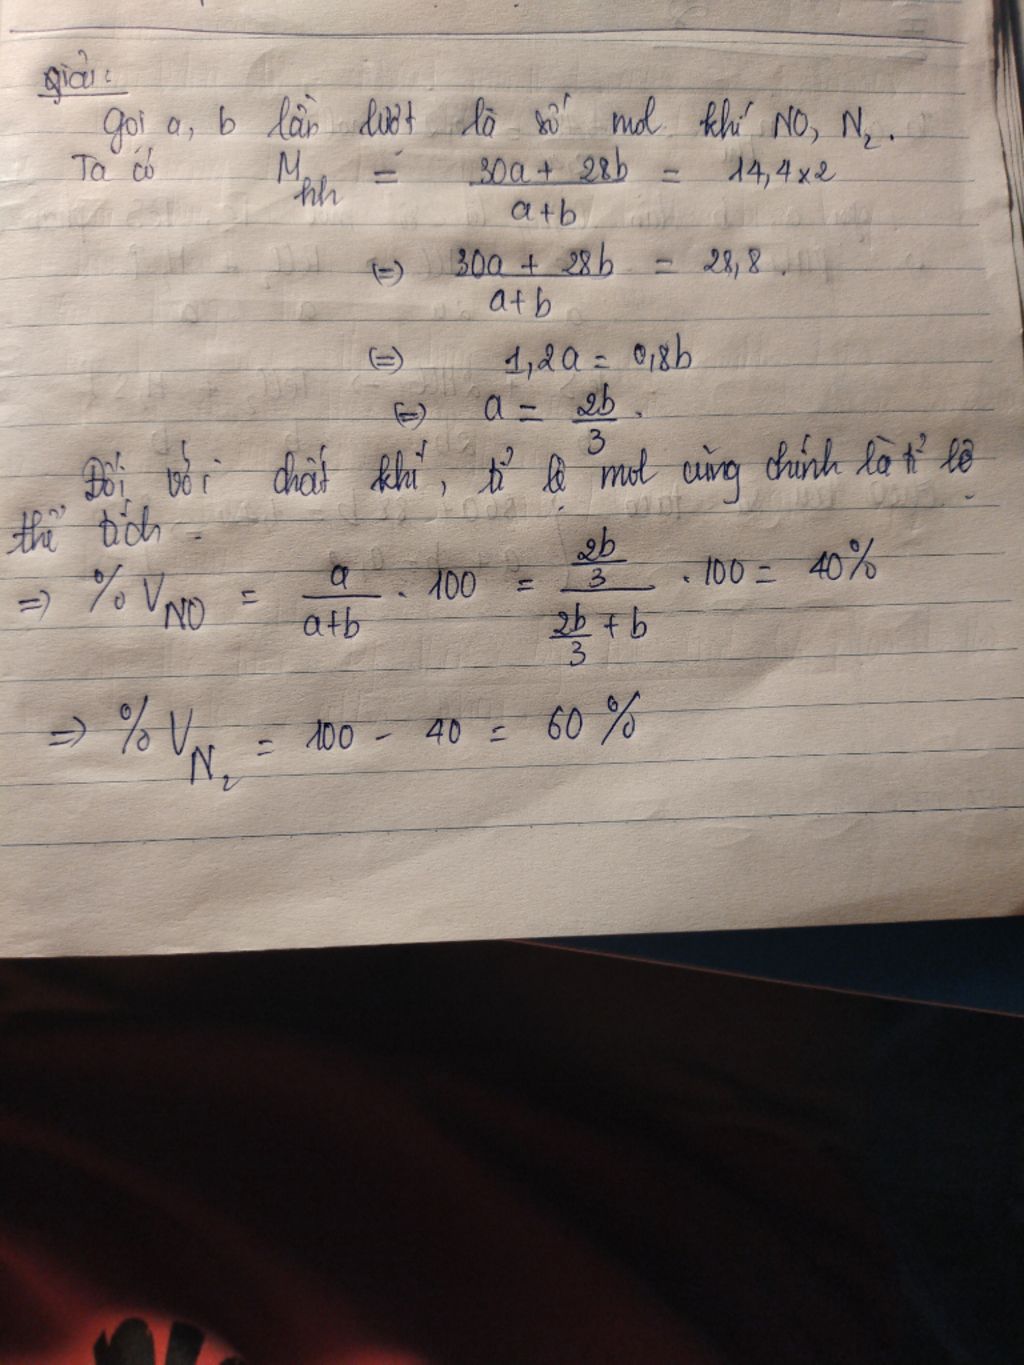 giải:
Gọi a, b lần lượt là số mol khí NO, N₂.
Ta có M_hh = (30a + 28b)/(a+b) = 14,4×2
(=) (30a + 28b)/(a+b) = 28,8.
(=) 1,2a = 0,8b
(=) a = 2b/3.
Đối với chất khí, tỉ lệ mol cũng chính là tỉ lệ
thể tích.
=> %V_NO = a/(a+b) . 100 = (2b/3)/(2b/3 + b) . 100 = 40%
=> %V_N₂ = 100 - 40 = 60%